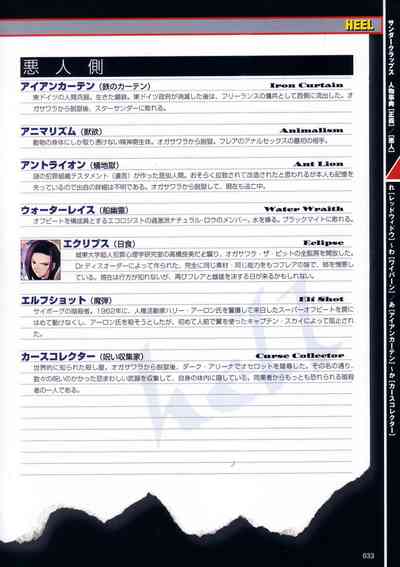 HEEL
悪人側
アイアンカーテン（鉄のカーテン） Iron Curtain
東ドイツの人間兵器。生きた鋼鉄。東ドイツ政府が消滅した後は、フリーランスの傭兵として西側に流出した。オ
ガサワラから脱獄後、スターサンダーに敗れる。
アニマリズム（獣欲） Animalism
動物の身体にしか取り憑けない精神寄生体。オガサワラから脱獄。フレアのアナルセックスの最初の相手。
アントライオン（蟻地獄） Ant Lion
謎の犯罪組織テスタメント（遺言）が作った昆虫人間。おそらく拉致されて改造されたと思われるが本人も記憶を
失っているので出自の詳細は不明である。オガサワラから脱獄して、現在も逃亡中。
ウォーターレイス（船幽霊） Water Wraith
オフビートを構成員とするエコロジストの過激派ナチュラル・ロウのメンバー。水を操る。ブラックマイトに敗れる。
エクリプス（日食） Eclipse
城東大学超人犯罪心理学研究室の高橋度美だと騙り、オガサワラ・ザ・ピットの全監房を開放した。
Dr.ディスオーダーによって作られた、完全に同じ素材・同じ能力をもつフレアの妹で、姉を憎悪し
ている。現在は行方が知れないが、再びフレアと雌雄を決する日が来るかもしれない。
エルフショット（魔弾） Elf Shot
サイボーグの暗殺者。1962年に、人権活動家ハリー・アーロン氏を警護して来日したスーパーオフビートを罠に
はめて動けなくし、アーロン氏を殺そうとしたが、初めて人前で翼を使ったキャプテン・スカイによって阻止され
た。
カースコレクター（呪い収集家） Curse Collector
世界的に知られた殺し屋。オガサワラから脱獄後、ダーク・アリーナでオセロットを陵辱した。その名の通り、
数々の呪いのかかった忌まわしい武器を収集して、自身の体内に隠している。同業者からもっとも恐れられる暗殺
者の一人である。
heel
サンダークラップス 人物事典［正義］／［悪人］
れ［レッドウィドウ］〜わ［ワイバーン］・あ［アイアンカーテン］〜か［カースコレクター］
033